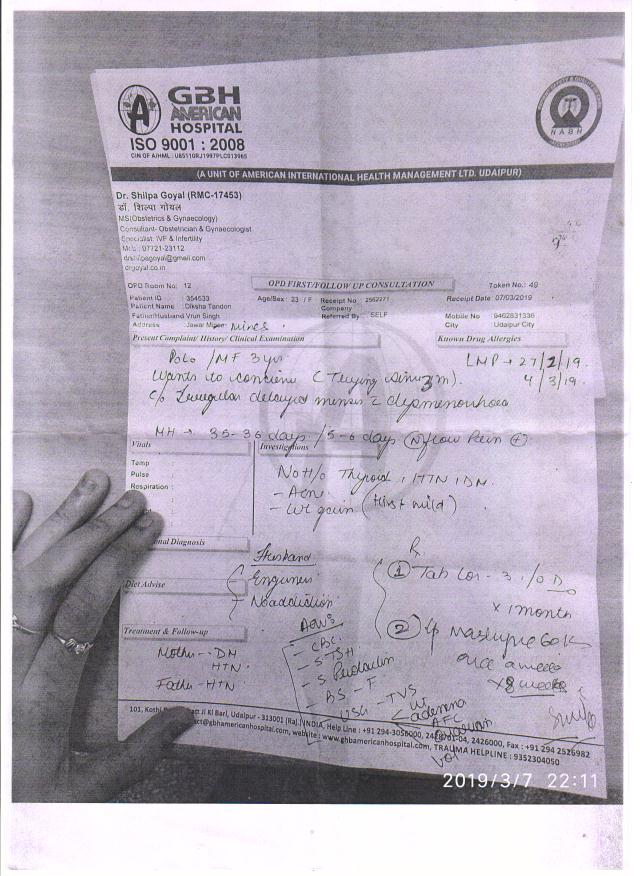 GBH
AMERICAN
HOSPITAL
ISO 9001 : 2008
CIN OF AIHML : U85110RJ1997PLC013965
NABH
(A UNIT OF AMERICAN INTERNATIONAL HEALTH MANAGEMENT LTD. UDAIPUR)
Dr. Shilpa Goyal (RMC-17453)
डॉ. शिल्पा गोयल
MS(Obstetrics & Gynaecology)
Consultant- Obstetrician & Gynaecologist
Specialist: IVF & Infertility
07721-23112
drshilpagoyal@gmail.com
drgoyal.co.in
OPD Room No: 12
OPD FIRST/FOLLOW UP CONSULTATION
Token No.: 49
Patient ID : 354533 Age/Sex: 23 / F Receipt No 2562271 Receipt Date: 07/03/2019
Patient Name : Diksha Tandon Company
Father/Husband Vrun Singh Referred By : SELF Mobile No : 9462831336
Address : Jawar Mines City : Udaipur City
Present Complaint/ History/ Clinical Examination Known Drug Allergies
P0L0 / MF 3 yrs LMP → 27/2/19.
Wants to conceive (Trying since 3m). 4/3/19.
c/o Irregular delayed menses c dysmenorrhoea
MH → 35-36 days / 5-6 days N flow Pain +
Vitals Investigations
Temp :
Pulse :
Respiration :
No H/o Thyroid, HTN, DM.
- Acne
- Wt gain (Hirst mild)
nal Diagnosis
Husband
Engineer
No addiction
Diet Advise
Rx
1 Tab - 3 1/OD
x 1 month
2 60K
once a week
x 8 weeks
Treatment & Follow-up
Mother - DM
HTN
Father - HTN
Adv
- CBC
- S TSH
- S Prolactin
- BS - F
- USG - TVS
AFC
101, Kothi Ji Ki Bari, Udaipur - 313001 (Raj.) INDIA, Help Line : +91 294-3056000, 2426000, Fax : +91 294 2526982
@gbhamericanhospital.com, website : www.gbhamericanhospital.com, TRAUMA HELPLINE : 9352304050
2019/3/7 22:11